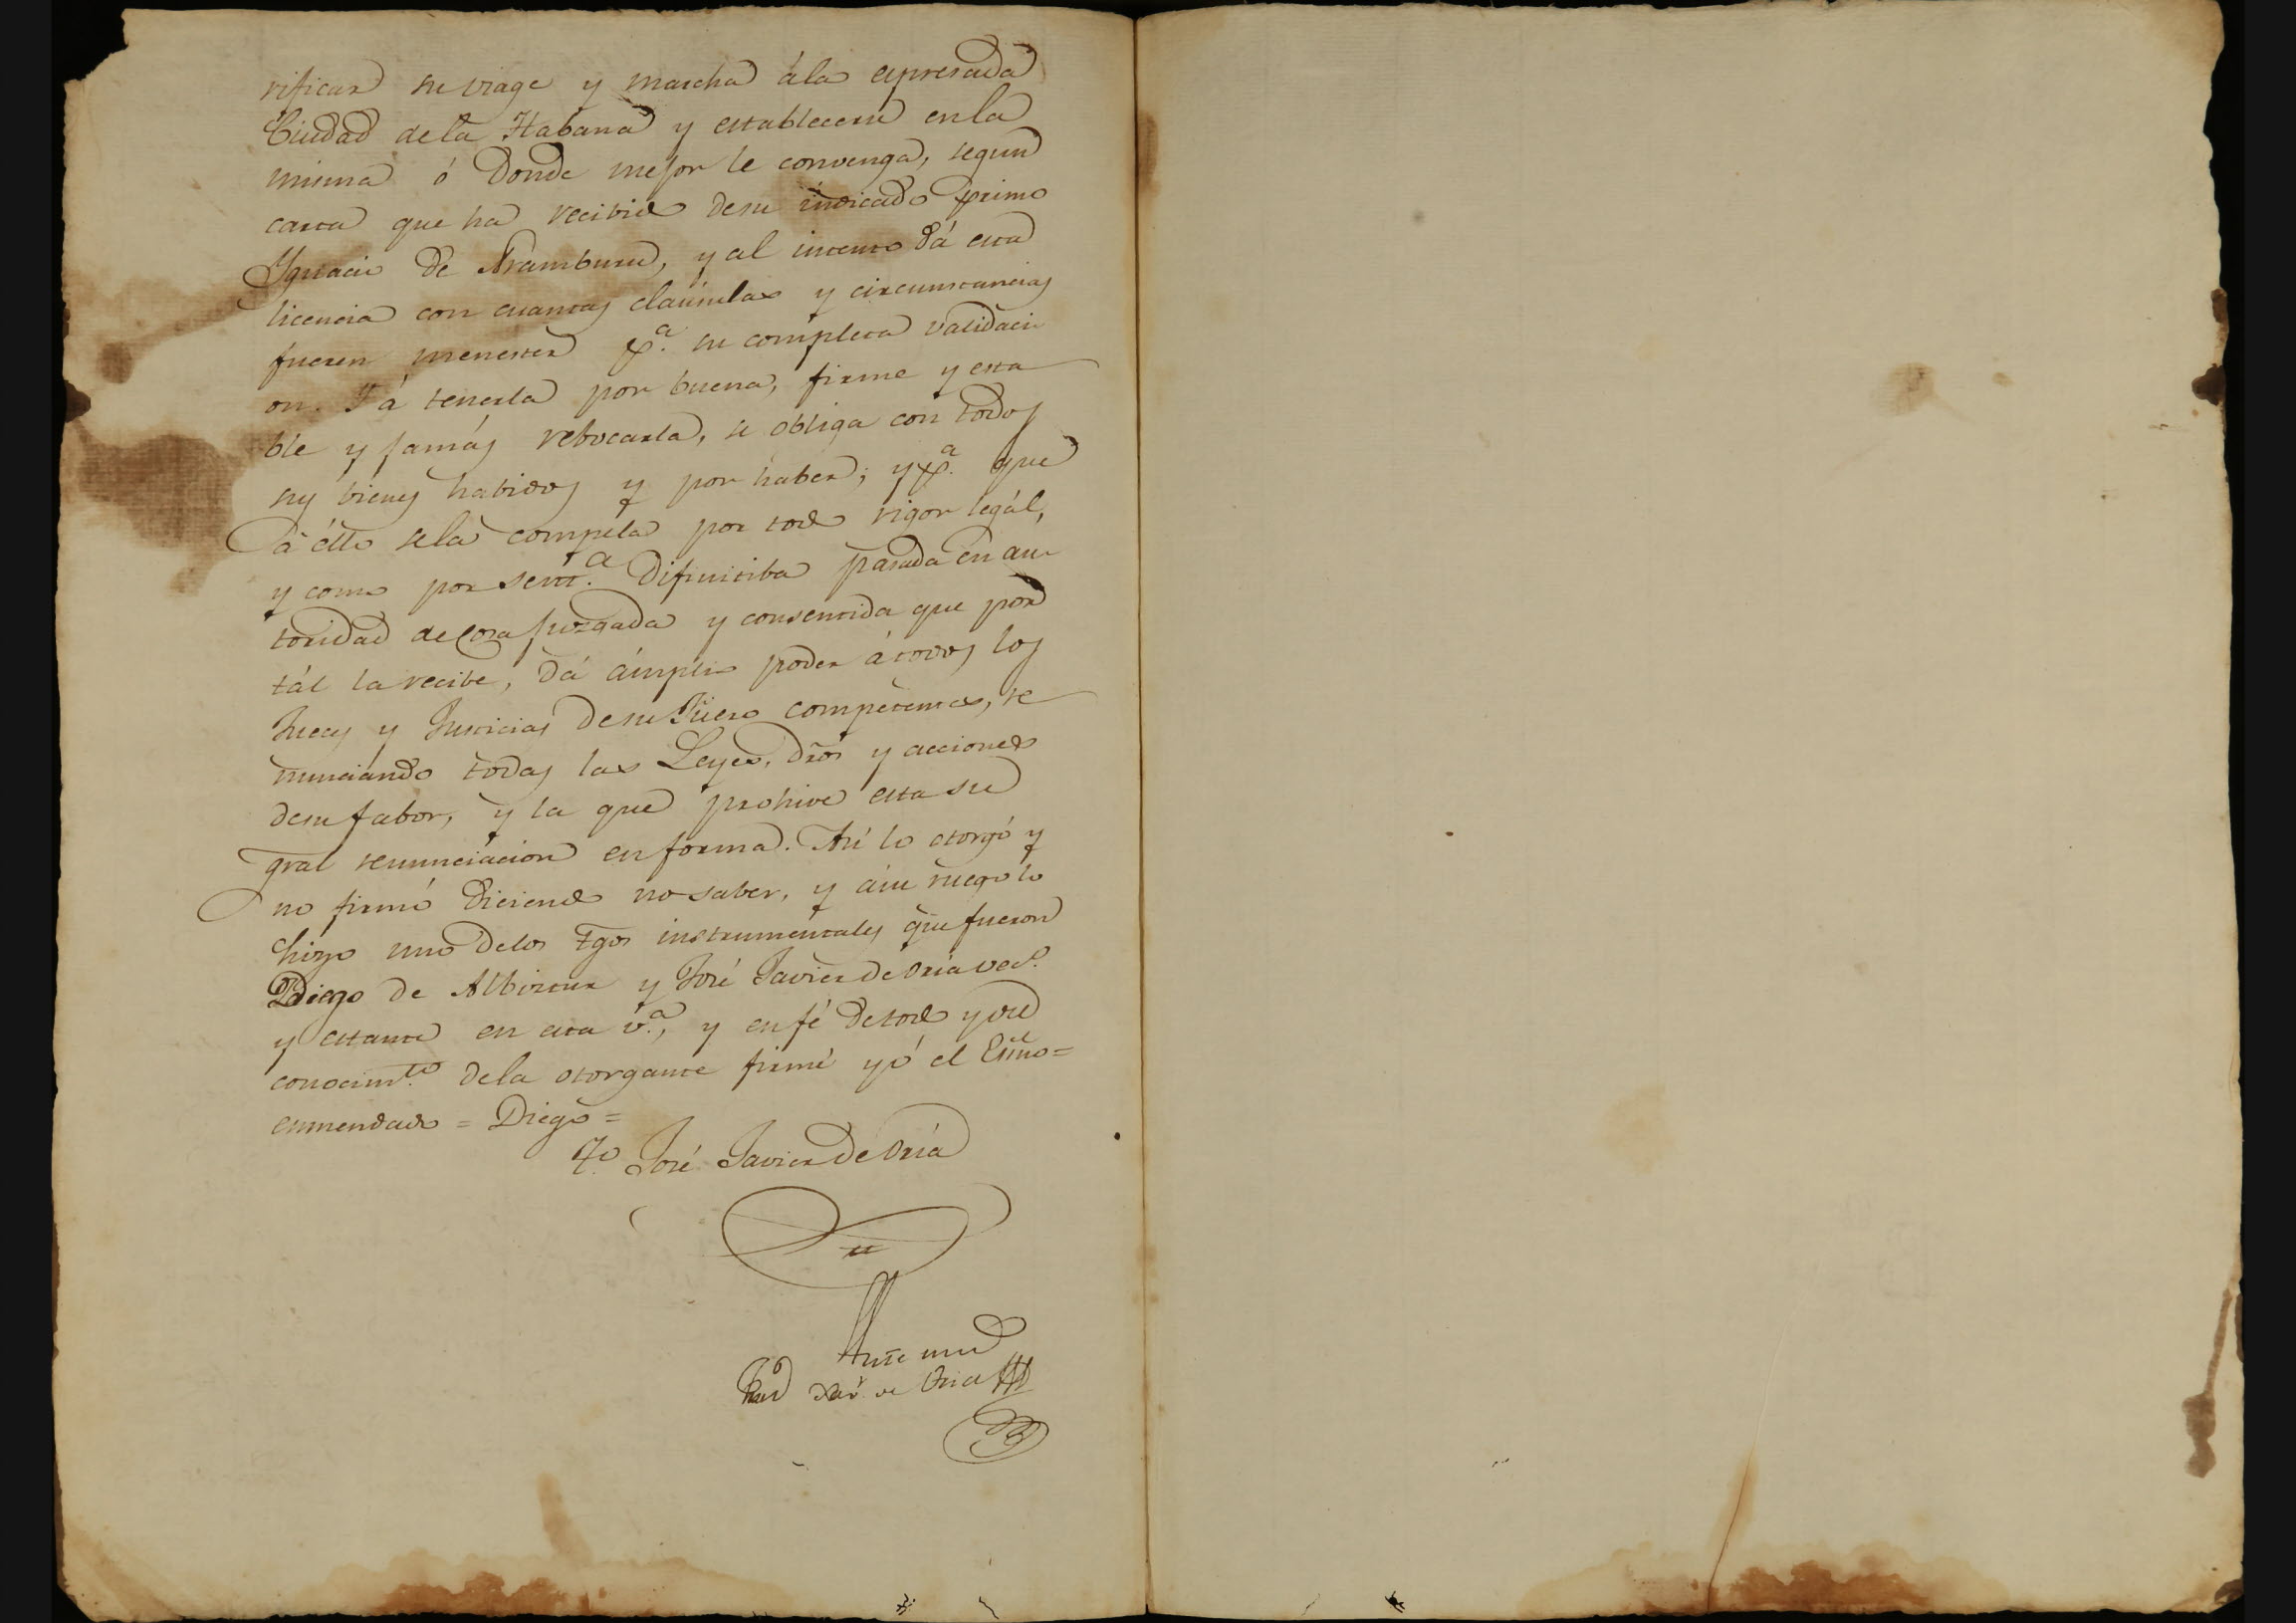 rificar su viage y marcha á la expresada
Ciudad de la Habana y establecerse en la
misma ó donde mejor le convenga, segun
carta que ha recibido de su indicado primo
Ygnacio de Aramburu, y al intento dá esta
licencia con cuantas claúsulas y circunstancias
fueren menester pª. su completa validaci
on. Y á tenerla por buena, firme y esta
ble y jamás rebocarla, se obliga con todos
sus bienes habidos y por haber; y pª. que
á éllo se la compela por todo rigor legál,
y como por sentª. difinitiba pasada en au
toridad de cosa juzgada y consentida que por
tál la recibe, dá ámplio poder á todos los
Jueces y Justicias de su Fuero competentes, re
nunciando todas las Leyes, dros y acciones
de su fabor, y la que prohive esta su
gral renunciacion en forma. Asi lo otorgó y
no firmó diciendo no saber, y á su ruego lo
hizo uno de los tgos instrumentales que fueron
Diego de Albistur y José Javier de Oria vecº.
y estante en esta vª., y en fé de todo y del
conocimtº. de la otorgante firmé yó el Esno=
enmendado = Diego =
Tº. José Javier de Oria
Ante mi
Xavr. de Oria